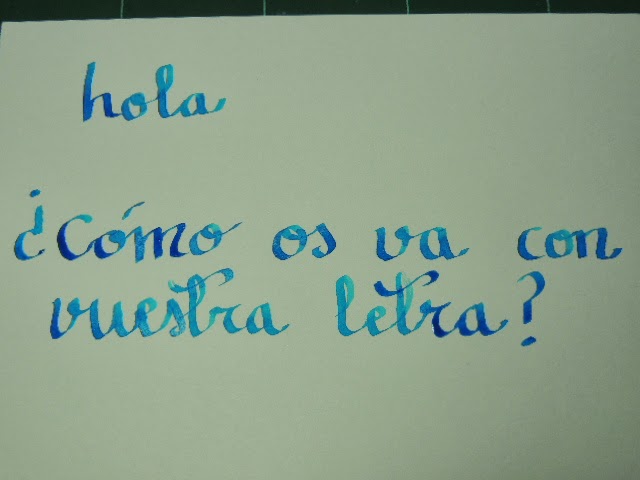 hola
¿Cómo os va con
vuestra letra?